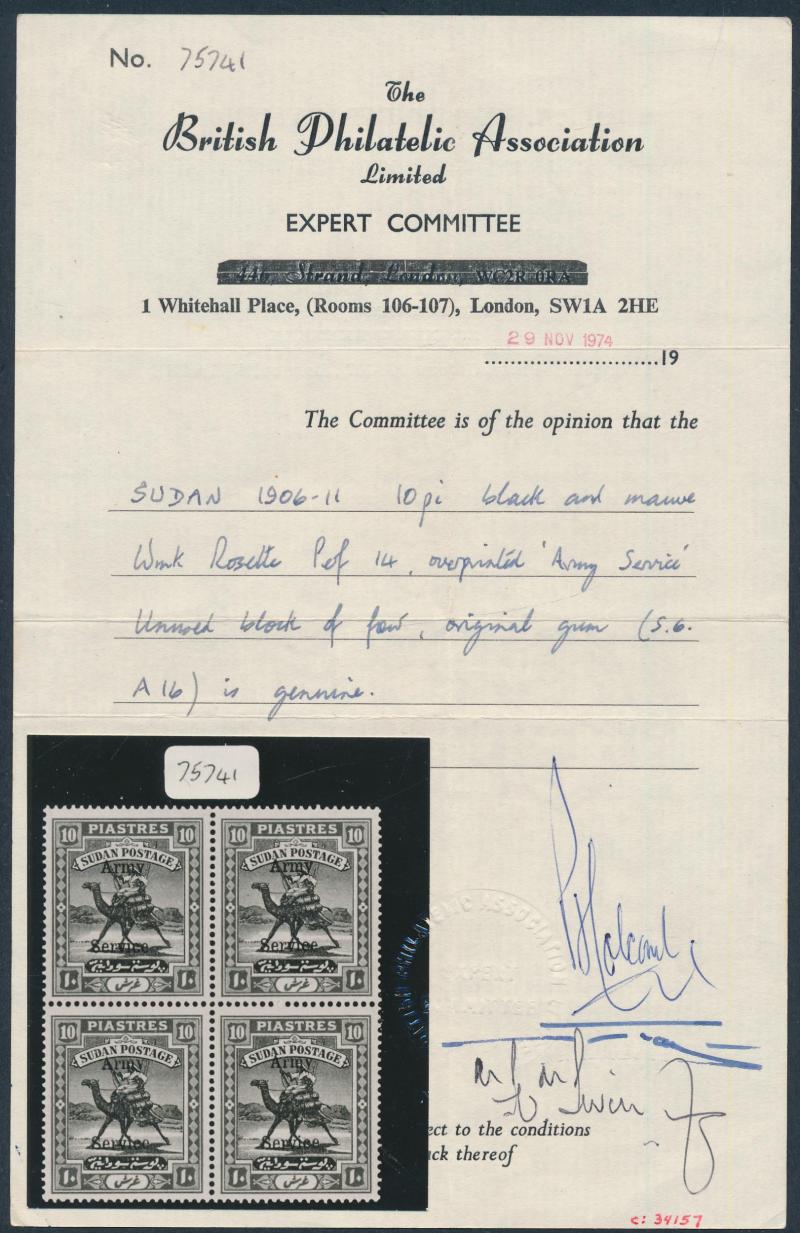 No. 75741
The
British Philatelic Association
Limited
EXPERT COMMITTEE
44b, Strand, London, WC2R 0RA
1 Whitehall Place, (Rooms 106-107), London, SW1A 2HE
29 NOV 1974
..........................19
The Committee is of the opinion that the
SUDAN 1906-11 10pi black and mauve
Wmk Rosette Perf 14, overprinted 'Army Service'
Unused block of four, original gum (S.G.
A16) is genuine.
75741
10 PIASTRES 10 10 PIASTRES 10
SUDAN POSTAGE SUDAN POSTAGE
Army Army
Service Service
بوستة سودانية بوستة سودانية
١٠ غرش ١٠ ١٠ غرش ١٠
10 PIASTRES 10 10 PIASTRES 10
SUDAN POSTAGE SUDAN POSTAGE
Army Army
Service Service
بوستة سودانية بوستة سودانية
١٠ غرش ١٠ ١٠ غرش ١٠
ect to the conditions
ck thereof
c: 34157